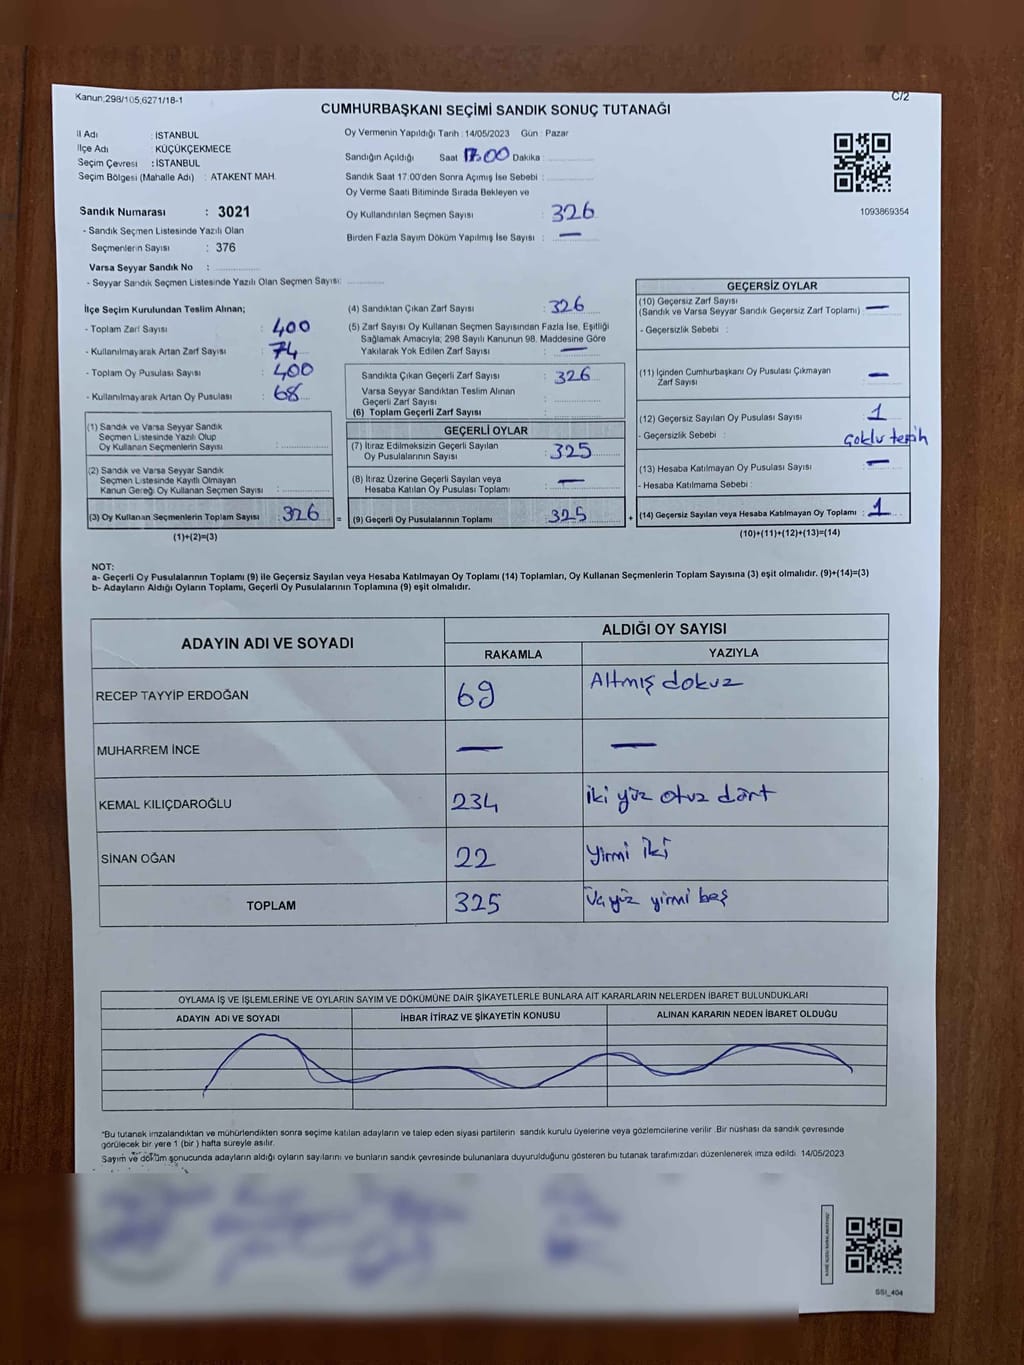 Kanun;298/105;6271/18-1
C/2
CUMHURBAŞKANI SEÇİMİ SANDIK SONUÇ TUTANAĞI
İl Adı : İSTANBUL
İlçe Adı : KÜÇÜKÇEKMECE
Seçim Çevresi : İSTANBUL
Seçim Bölgesi (Mahalle Adı) : ATAKENT MAH.
Sandık Numarası : 3021
- Sandık Seçmen Listesinde Yazılı Olan
Seçmenlerin Sayısı : 376
Varsa Seyyar Sandık No :
- Seyyar Sandık Seçmen Listesinde Yazılı Olan Seçmen Sayısı:
Oy Vermenin Yapıldığı Tarih : 14/05/2023 Gün : Pazar
Sandığın Açıldığı Saat 17:00 Dakika :
Sandık Saat 17:00'den Sonra Açımış İse Sebebi :
Oy Verme Saati Bitiminde Sırada Bekleyen ve
Oy Kullandırılan Seçmen Sayısı : 326
Birden Fazla Sayım Döküm Yapılmış İse Sayısı : —
1093869354
İlçe Seçim Kurulundan Teslim Alınan;
- Toplam Zarf Sayısı : 400
- Kullanılmayarak Artan Zarf Sayısı : 74
- Toplam Oy Pusulası Sayısı : 400
- Kullanılmayarak Artan Oy Pusulası : 68
(1) Sandık ve Varsa Seyyar Sandık
Seçmen Listesinde Yazılı Olup
Oy Kullanan Seçmenlerin Sayısı :
(2) Sandık ve Varsa Seyyar Sandık
Seçmen Listesinde Kayıtlı Olmayan
Kanun Gereği Oy Kullanan Seçmen Sayısı :
(3) Oy Kullanan Seçmenlerin Toplam Sayısı : 326 =
(1)+(2)=(3)
(4) Sandıktan Çıkan Zarf Sayısı : 326
(5) Zarf Sayısı Oy Kullanan Seçmen Sayısından Fazla İse, Eşitliği
Sağlamak Amacıyla; 298 Sayılı Kanunun 98. Maddesine Göre
Yakılarak Yok Edilen Zarf Sayısı : —
Sandıkta Çıkan Geçerli Zarf Sayısı : 326
Varsa Seyyar Sandıktan Teslim Alınan
Geçerli Zarf Sayısı :
(6) Toplam Geçerli Zarf Sayısı :
GEÇERLİ OYLAR
(7) İtiraz Edilmeksizin Geçerli Sayılan
Oy Pusulalarının Sayısı : 325
(8) İtiraz Üzerine Geçerli Sayılan veya
Hesaba Katılan Oy Pusulası Toplamı : —
(9) Geçerli Oy Pusulalarının Toplamı : 325 +
GEÇERSİZ OYLAR
(10) Geçersiz Zarf Sayısı
(Sandık ve Varsa Seyyar Sandık Geçersiz Zarf Toplamı) : —
- Geçersizlik Sebebi :
(11) İçinden Cumhurbaşkanı Oy Pusulası Çıkmayan
Zarf Sayısı : —
(12) Geçersiz Sayılan Oy Pusulası Sayısı : 1
- Geçersizlik Sebebi : Çoklu tercih
(13) Hesaba Katılmayan Oy Pusulası Sayısı : —
- Hesaba Katılmama Sebebi :
(14) Geçersiz Sayılan veya Hesaba Katılmayan Oy Toplamı : 1
(10)+(11)+(12)+(13)=(14)
NOT:
a- Geçerli Oy Pusulalarının Toplamı (9) ile Geçersiz Sayılan veya Hesaba Katılmayan Oy Toplamı (14) Toplamları, Oy Kullanan Seçmenlerin Toplam Sayısına (3) eşit olmalıdır. (9)+(14)=(3)
b- Adayların Aldığı Oyların Toplamı, Geçerli Oy Pusulalarının Toplamına (9) eşit olmalıdır.
ADAYIN ADI VE SOYADI
ALDIĞI OY SAYISI
RAKAMLA YAZIYLA
RECEP TAYYİP ERDOĞAN 69 Altmış dokuz
MUHARREM İNCE — —
KEMAL KILIÇDAROĞLU 234 iki yüz otuz dört
SİNAN OĞAN 22 yirmi iki
TOPLAM 325 Üçyüz yirmi beş
OYLAMA İŞ VE İŞLEMLERİNE VE OYLARIN SAYIM VE DÖKÜMÜNE DAİR ŞİKAYETLERLE BUNLARA AİT KARARLARIN NELERDEN İBARET BULUNDUKLARI
ADAYIN ADI VE SOYADI İHBAR İTİRAZ VE ŞİKAYETİN KONUSU ALINAN KARARIN NEDEN İBARET OLDUĞU
*Bu tutanak imzalandıktan ve mühürlendikten sonra seçime katılan adayların ve talep eden siyasi partilerin sandık kurulu üyelerine veya gözlemcilerine verilir .Bir nüshası da sandık çevresinde
görülecek bir yere 1 (bir ) hafta süreyle asılır.
Sayım ve döküm sonucunda adayların aldığı oyların sayılarını ve bunların sandık çevresinde bulunanlara duyurulduğunu gösteren bu tutanak tarafımızdan düzenlenerek imza edildi. 14/05/2023
SSI_404